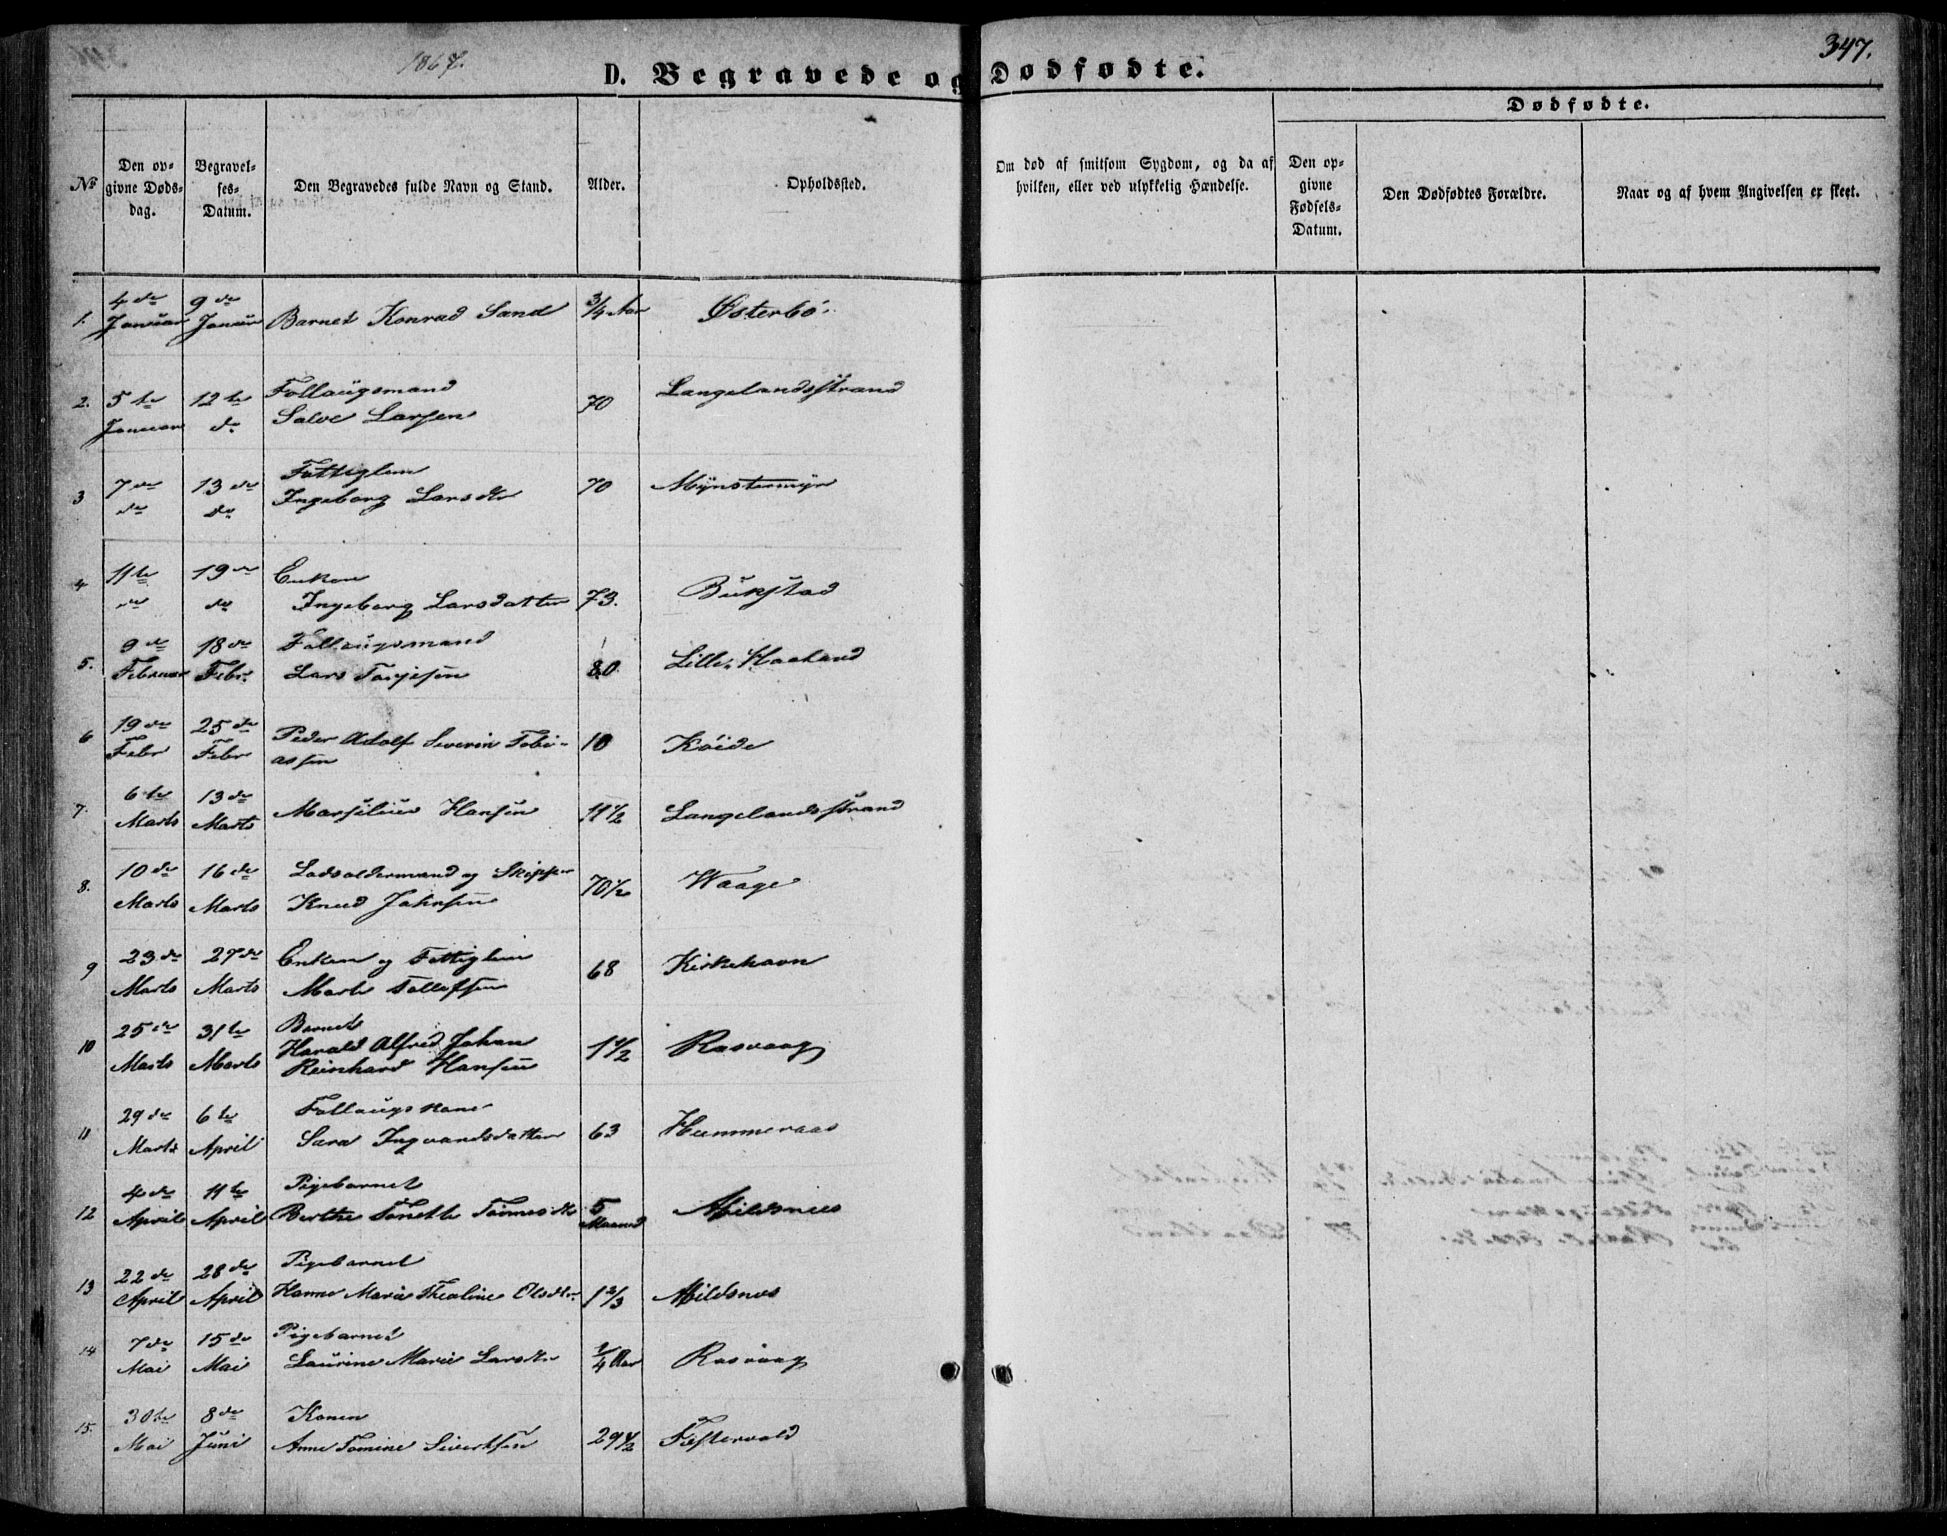 1867.
D. Begravede og Dødfødte.
347.
Dødfødte.
No
Den opgivne Dødsdag.
Begravelses-Datum.
Den Begravedes fulde Navn og Stand.
Alder.
Opholdssted.
Om død af smitsom Sygdom, og da af hvilken, eller ved ulykkelig Hændelse.
Den opgivne Fødsels-Datum.
Den Dødfødtes Forældre.
Naar og af hvem Angivelsen er skeet.
1. 4de Januar 9de Januar Barnet Konrad Sand 3/4 Aar Østerbö
2. 5te Januar 12te do Follaugsmand Salve Larsen 70 Langelandsstrand
3 7de do 13de do Fattiglem Ingeborg Larsdtr 70 Mynstermyr
4 11te do 19de do Enken Ingeborg Larsdatter 73. Bukstad
5. 9de Februar 18de Febr. Follaugsmand Lars Tarjesen 80. Lille
6 19de Febr 25de Febr Peder Adolf Severin Tobiassen 10 Köide
7. 6te Marts 13de Marts Marselius Hansen 11 1/2 Langelandsstrand
8. 10de Marts 16de Marts Lodsoldermand og Skipper Knud Jahnsen 70 1/2 Waage
9 23de Marts 27de Marts Enken og Fattiglem Marte Tollefsen 68 Kirkehavn
10 25de Marts 31te Marts Barnet Harald Alfred Johan Reinhard Hansen 1 1/2 Rasvaag
11 29de Marts 6te April Follaugskone Sara Ingvardsdatter 63 Hummeraas
12 4de April 11te April Pigebarnet Berthe Tonette Tönnesdtr 5 Maaned Mildsnes
13 22de April 28de April Pigebarnet Hanne Marie Thealine Olsdtr. 1 2/3 Mildsnes
14 7de Mai 15de Mai Pigebarnet Laurine Marie Larsdtr 1/4 Aar Rasvaag
15. 30te Mai 8de Juni Konen Anne Tomine Sivertsen 29 1/2 Fæstervold